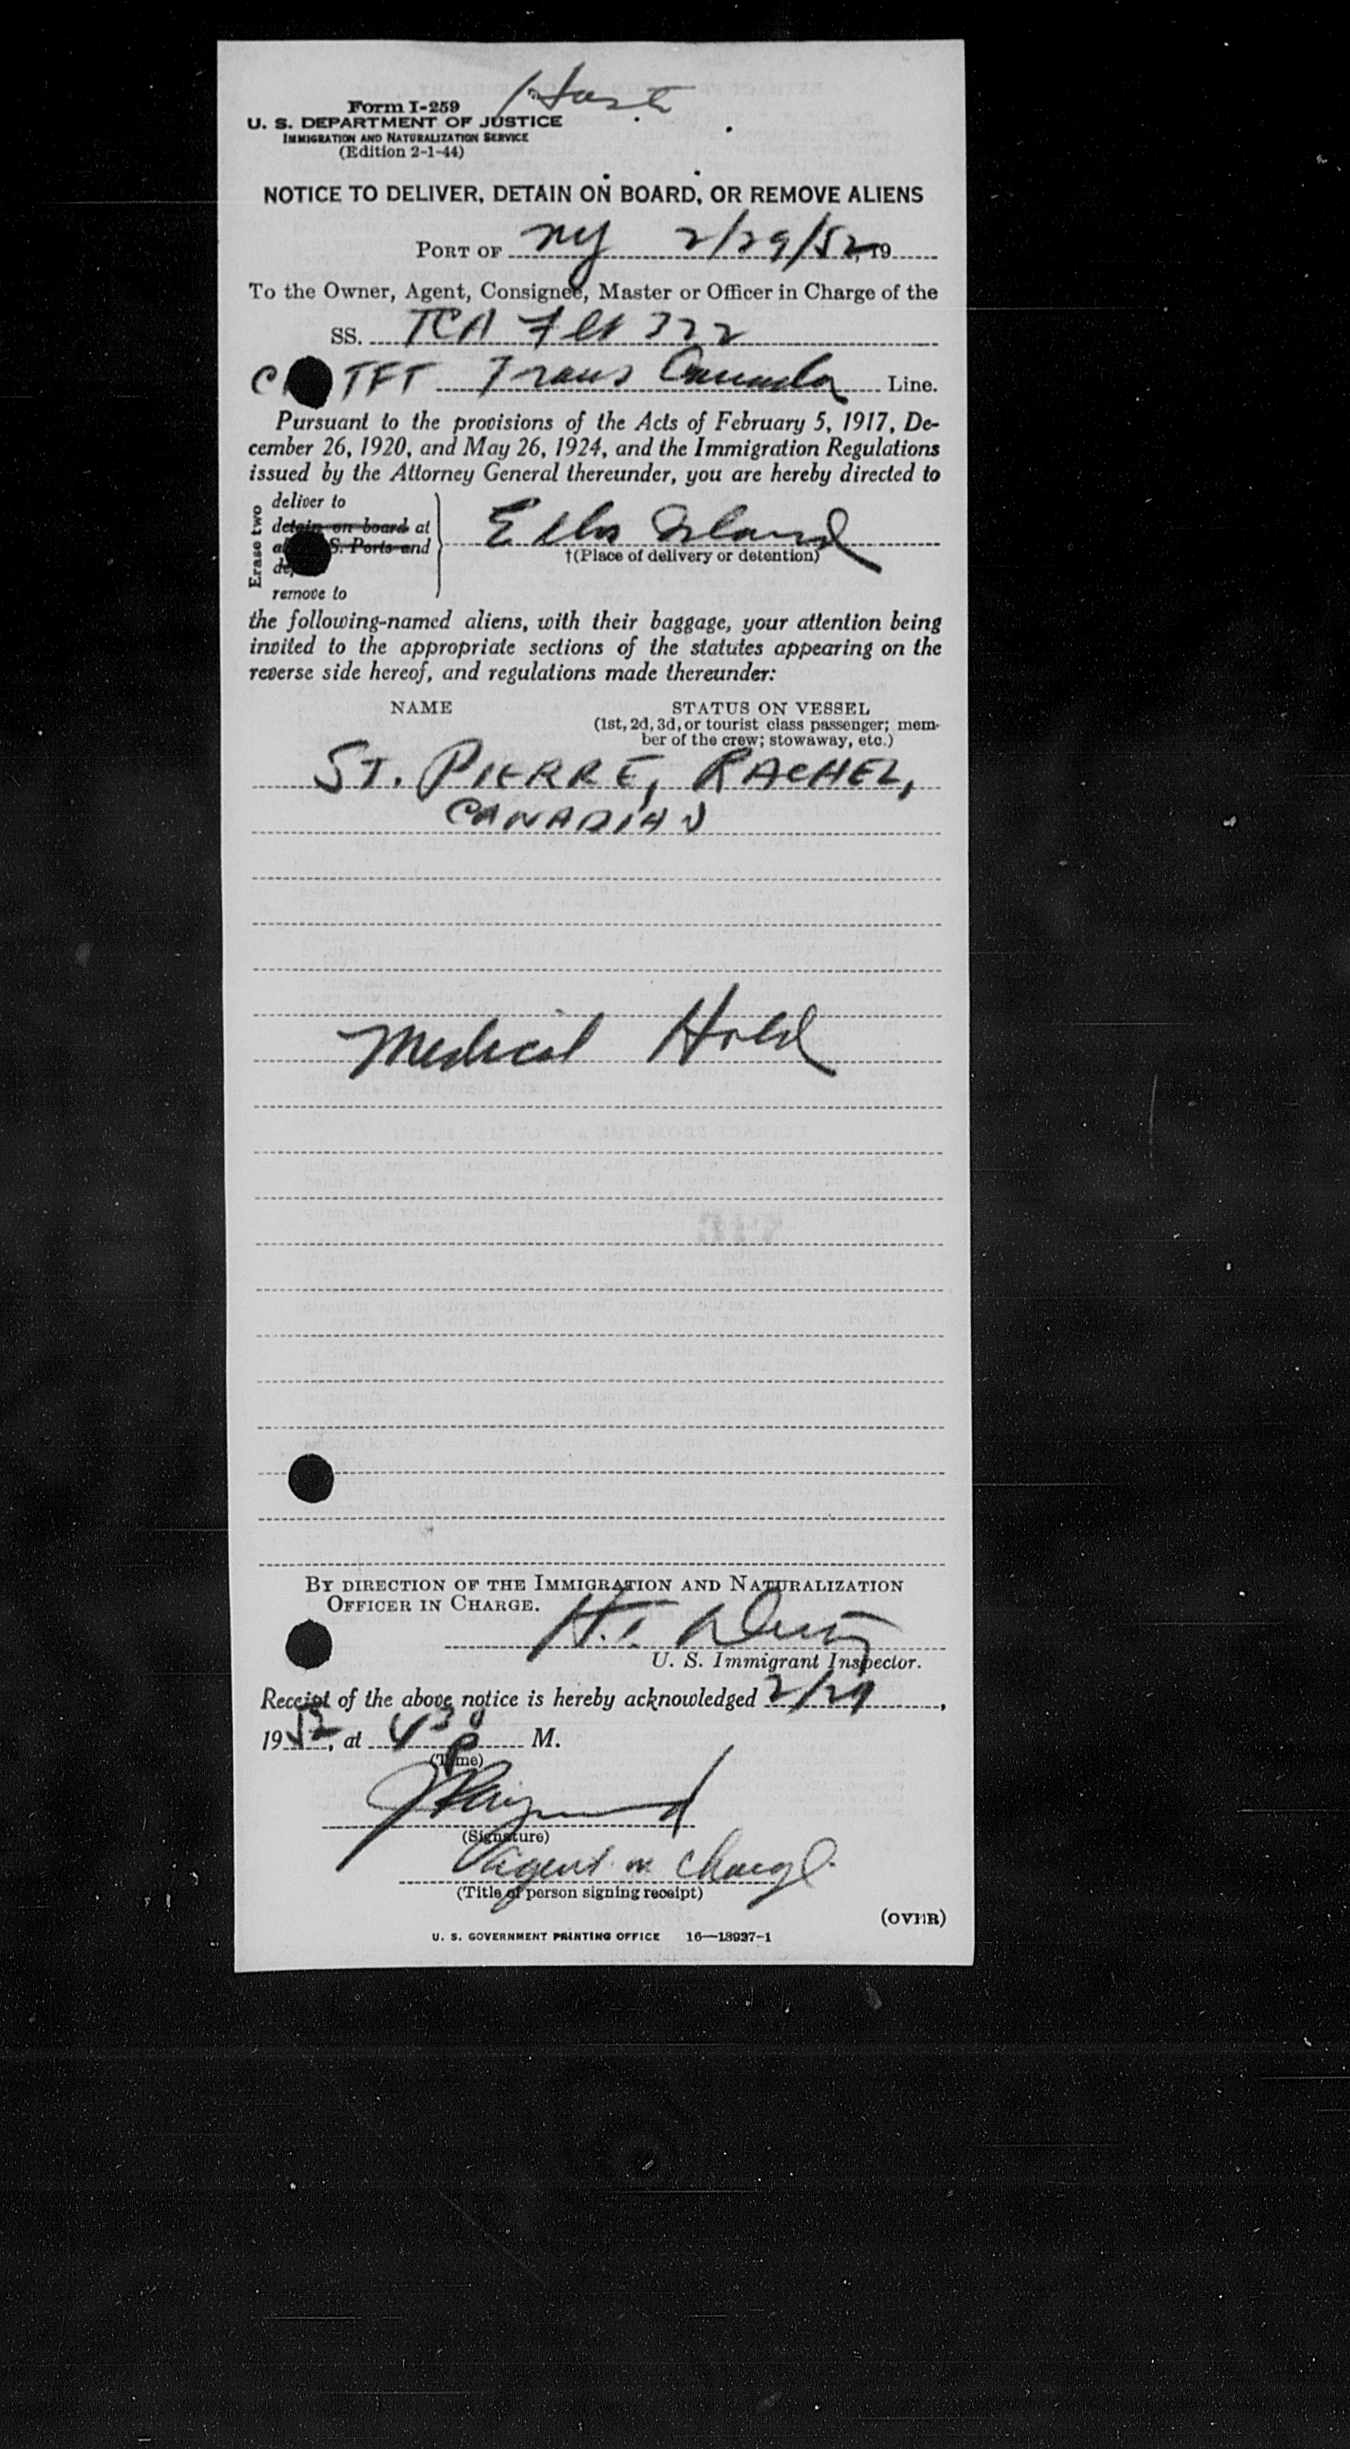 Form I-259
U. S. DEPARTMENT OF JUSTICE
IMMIGRATION AND NATURALIZATION SERVICE
(Edition 2-1-44)
NOTICE TO DELIVER, DETAIN ON BOARD, OR REMOVE ALIENS
PORT OF NY 2/29/52, 19
To the Owner, Agent, Consignee, Master or Officer in Charge of the
SS. TCA Flt 322
TFT Trans Canada Line.
Pursuant to the provisions of the Acts of February 5, 1917, De-
cember 26, 1920, and May 26, 1924, and the Immigration Regulations
issued by the Attorney General thereunder, you are hereby directed to
Erase two
deliver to
detain on board at
S. Ports and
remove to
Ellis Island
†(Place of delivery or detention)
the following-named aliens, with their baggage, your attention being
invited to the appropriate sections of the statutes appearing on the
reverse side hereof, and regulations made thereunder:
NAME STATUS ON VESSEL
(1st, 2d, 3d, or tourist class passenger; mem-
ber of the crew; stowaway, etc.)
ST. PIERRE, RACHEL,
CANADIAN
Medical Hold
BY DIRECTION OF THE IMMIGRATION AND NATURALIZATION
OFFICER IN CHARGE.
H.
U. S. Immigrant Inspector.
Receipt of the above notice is hereby acknowledged 2/29,
1952, at 4 30 P M.
(Time)
J Raymond
(Signature)
Agent in Charge
(Title of person signing receipt)
(OVER)
U. S. GOVERNMENT PRINTING OFFICE 16—18937-1